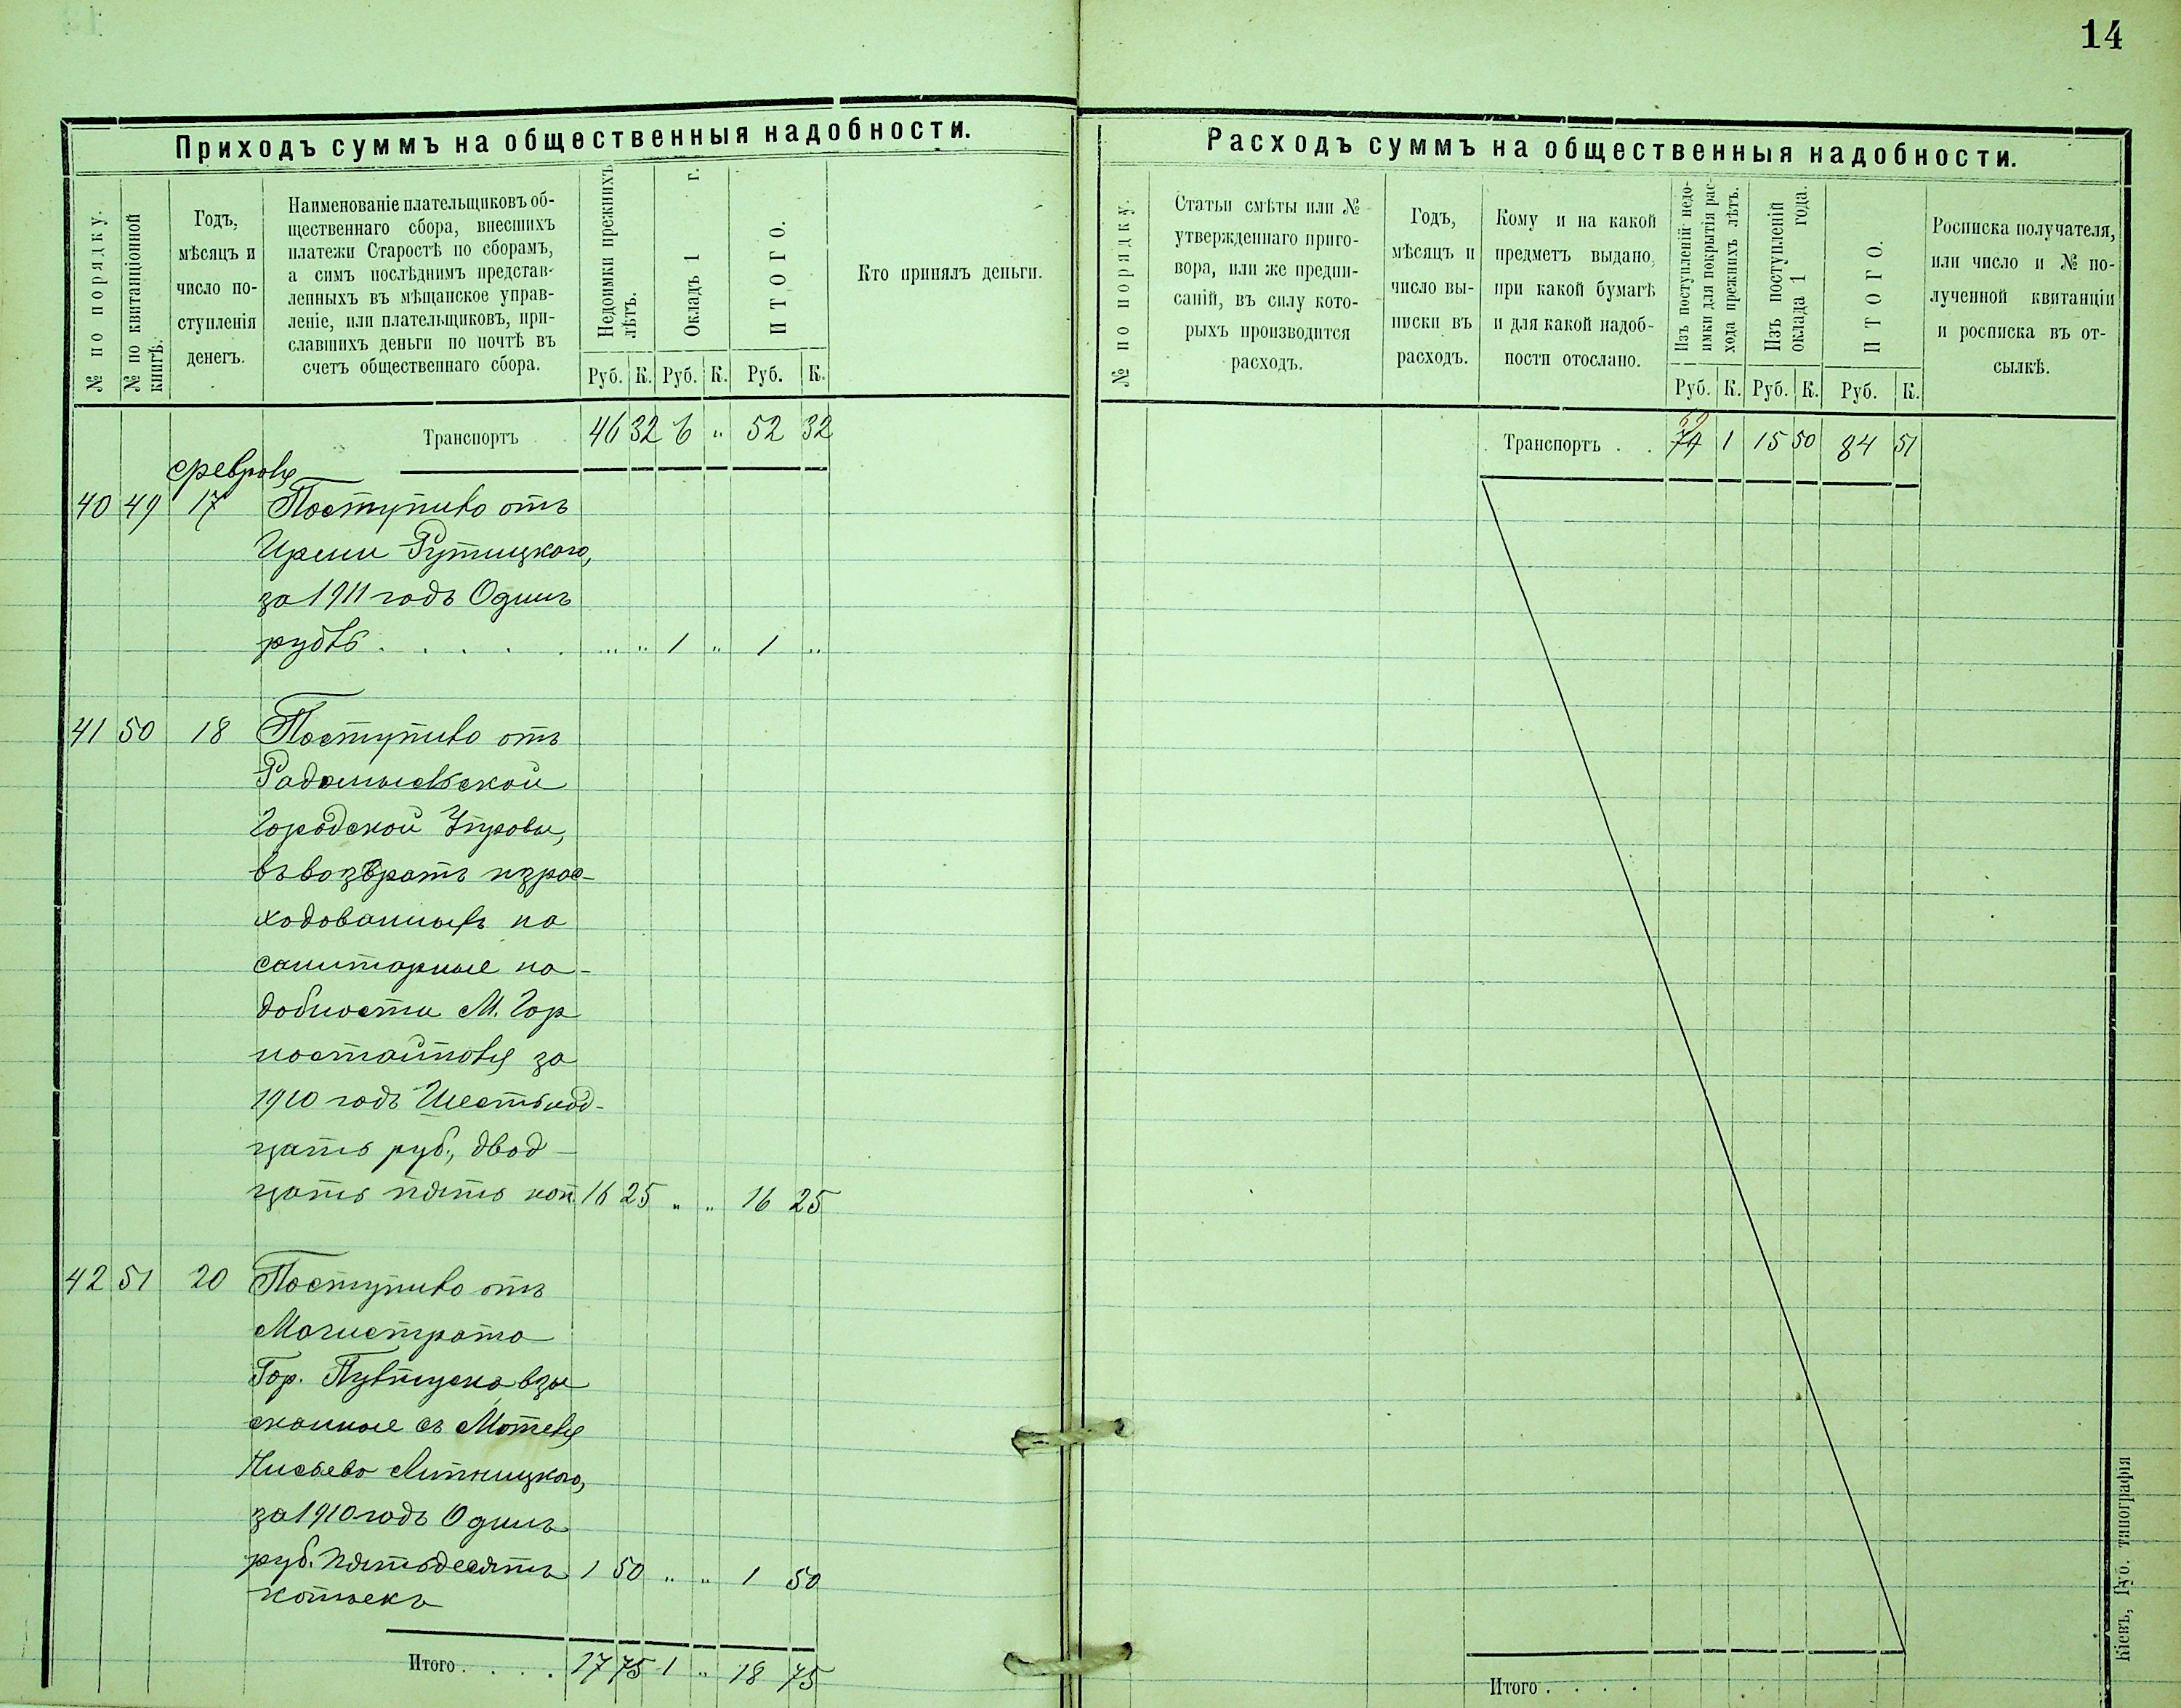 14
Приходъ суммъ на общественныя надобности.
№ по порядку.
№ по квитанціонной
книгѣ.
Годъ,
мѣсяцъ и
число по-
ступленія
денегъ.
Наименованіе плательщиковъ об-
щественнаго сбора, внесшихъ
платежи Старостѣ по сборамъ,
а симъ послѣднимъ представ-
ленныхъ въ мѣщанское управ-
леніе, или плательщиковъ, при-
славшихъ деньги по почтѣ въ
счетъ общественнаго сбора.
Недоимки прежнихъ
лѣтъ.
Окладъ 1 г.
ИТОГО.
Кто принялъ деньги.
Руб. К. Руб. К. Руб. К.
Транспортъ 46 32 6 „ 52 32
февраля
40 49 17 Поступило отъ
Рутицкого,
за 1911 годъ Одинъ
рубль . . . . . „ „ 1 „ 1 „
41 50 18 Поступило отъ
Радомысльской
Городской Управы,
въ возвратъ израс-
ходованныхъ на
санитарные на-
добности М. Гор
ностайполя за
1910 годъ Шестьнад-
цать руб., двад-
цать пять коп. 16 25 „ „ 16 25
42 51 20 Поступило отъ
Магистрата
Гор. Пултуска взы
сканные съ Мотеля
Липницкого,
за 1910 годъ Одинъ
руб. пятьдесятъ 1 50 „ „ 1 50
копѣекъ
Итого . . . . 17 75 1 „ 18 75
Расходъ суммъ на общественныя надобности.
№ по порядку.
Статьи смѣты или №
утвержденнаго приго-
вора, или же предпи-
саній, въ силу кото-
рыхъ производится
расходъ.
Годъ,
мѣсяцъ и
число вы-
писки въ
расходъ.
Кому и на какой
предметъ выдано,
при какой бумагѣ
и для какой надоб-
ности отослано.
Изъ поступленій недо-
имки для покрытія рас-
хода прежнихъ лѣтъ.
Изъ поступленій
оклада 1 года.
ИТОГО.
Росписка получателя,
или число и № по-
лученной квитанціи
и росписка въ от-
сылкѣ.
Руб. К. Руб. К. Руб. К.
69
Транспортъ . . 74 1 15 50 84 51
Итого . . . .
Кіевъ, Губ. типографія